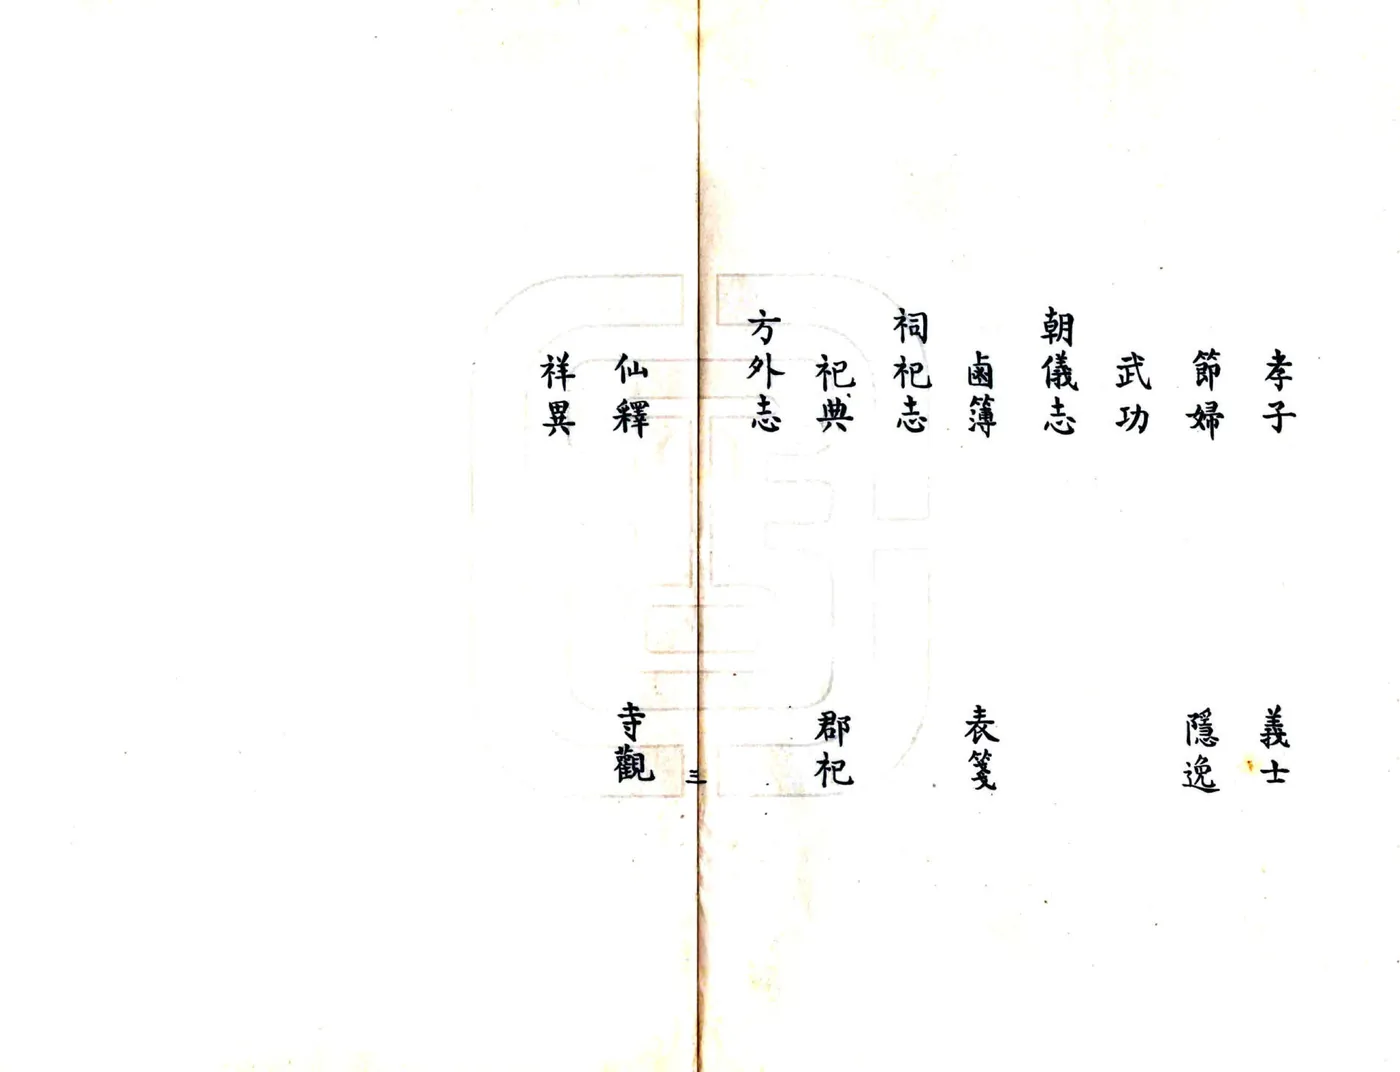 孝子 義士
節婦 隱逸
武功
朝儀志
鹵簿 表箋
祠祀志
祀典 郡祀
方外志
三
仙釋 寺觀
祥異